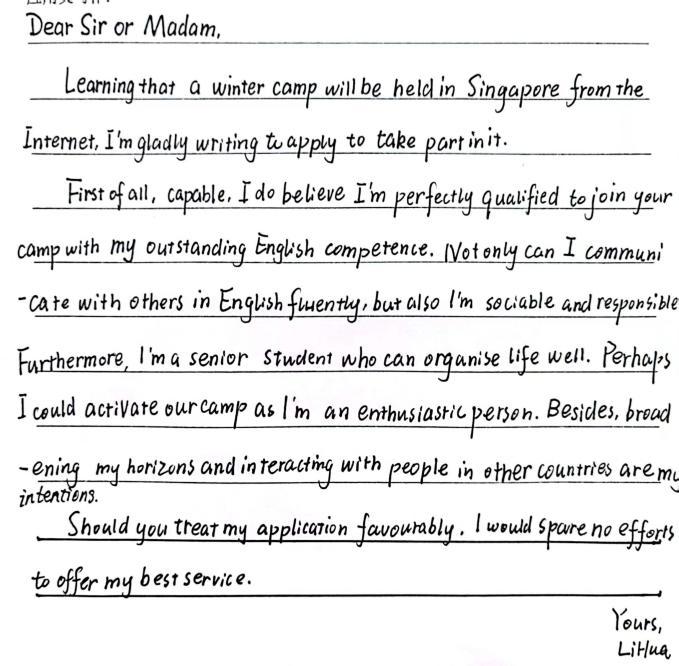 Dear Sir or Madam,
Learning that a winter camp will be held in Singapore from the
Internet, I'm gladly writing to apply to take part in it.
First of all, capable, I do believe I'm perfectly qualified to join your
camp with my outstanding English competence. Not only can I communi
-cate with others in English fluently, but also I'm sociable and responsible
Furthermore, I'm a senior student who can organise life well. Perhaps
I could activate our camp as I'm an enthusiastic person. Besides, broad
-ening my horizons and interacting with people in other countries are my
intentions.
Should you treat my application favourably, I would spare no efforts
to offer my best service.
Yours,
LiHua